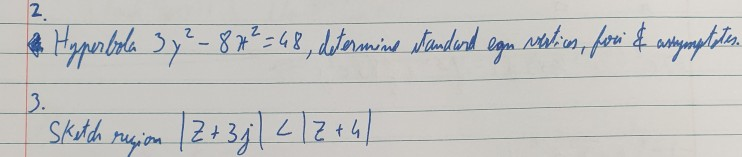 2.
Hyperbola 3y² - 8x² = 48, determine standard eqn vertices, foci & asymptotes.
3.
Sketch region |z + 3j| < |z + 4|